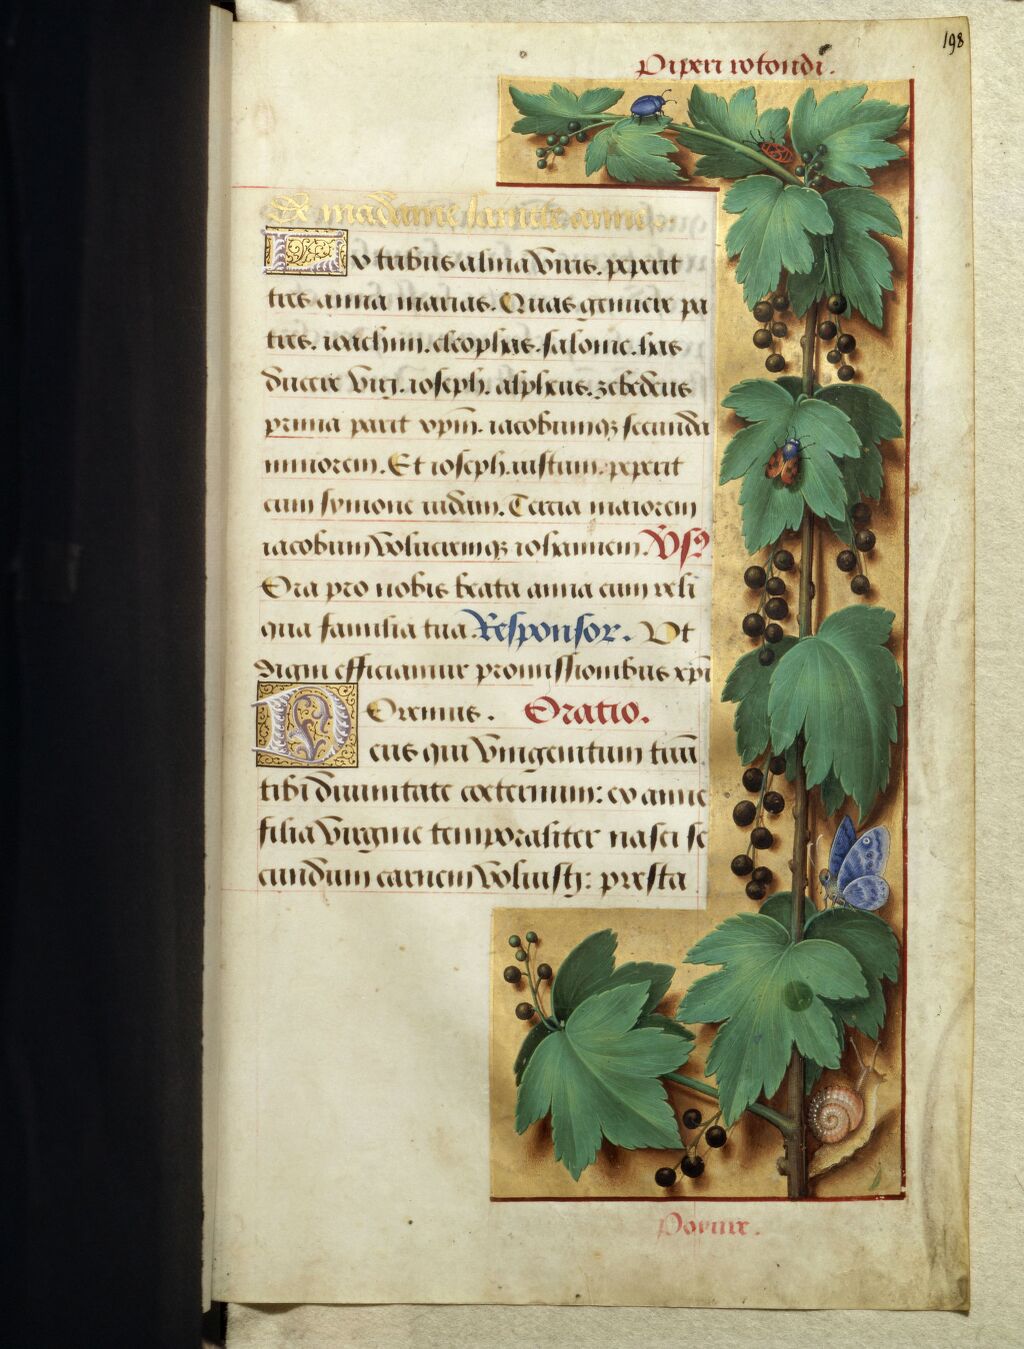 198
Piperi rotondi.
De madame saincte anne.
Ex tribus alma viris. peperit
tres anna marias. Quas genuere pa
tres. ioachim. cleophas. salome. has
ducere viri. ioseph. alpheus. zebedeus
prima parit xp̄m. iacobumqz secunda
minorem. Et ioseph. iustum. peperit
cum symone iudam. Tercia maiorem
iacobum volucremqz iohannem. Vs9
Ora pro nobis beata anna cum reli
qua familia tua. Responsor. Vt
digni efficiamur promissionibus xp̄i
Oremus. Oratio.
Deus qui vnigenitum tuū
tibi diuinitate coeternum: ex anne
filia virgine temporaliter nasci se
cundum carnem voluisti: presta
Poeure.